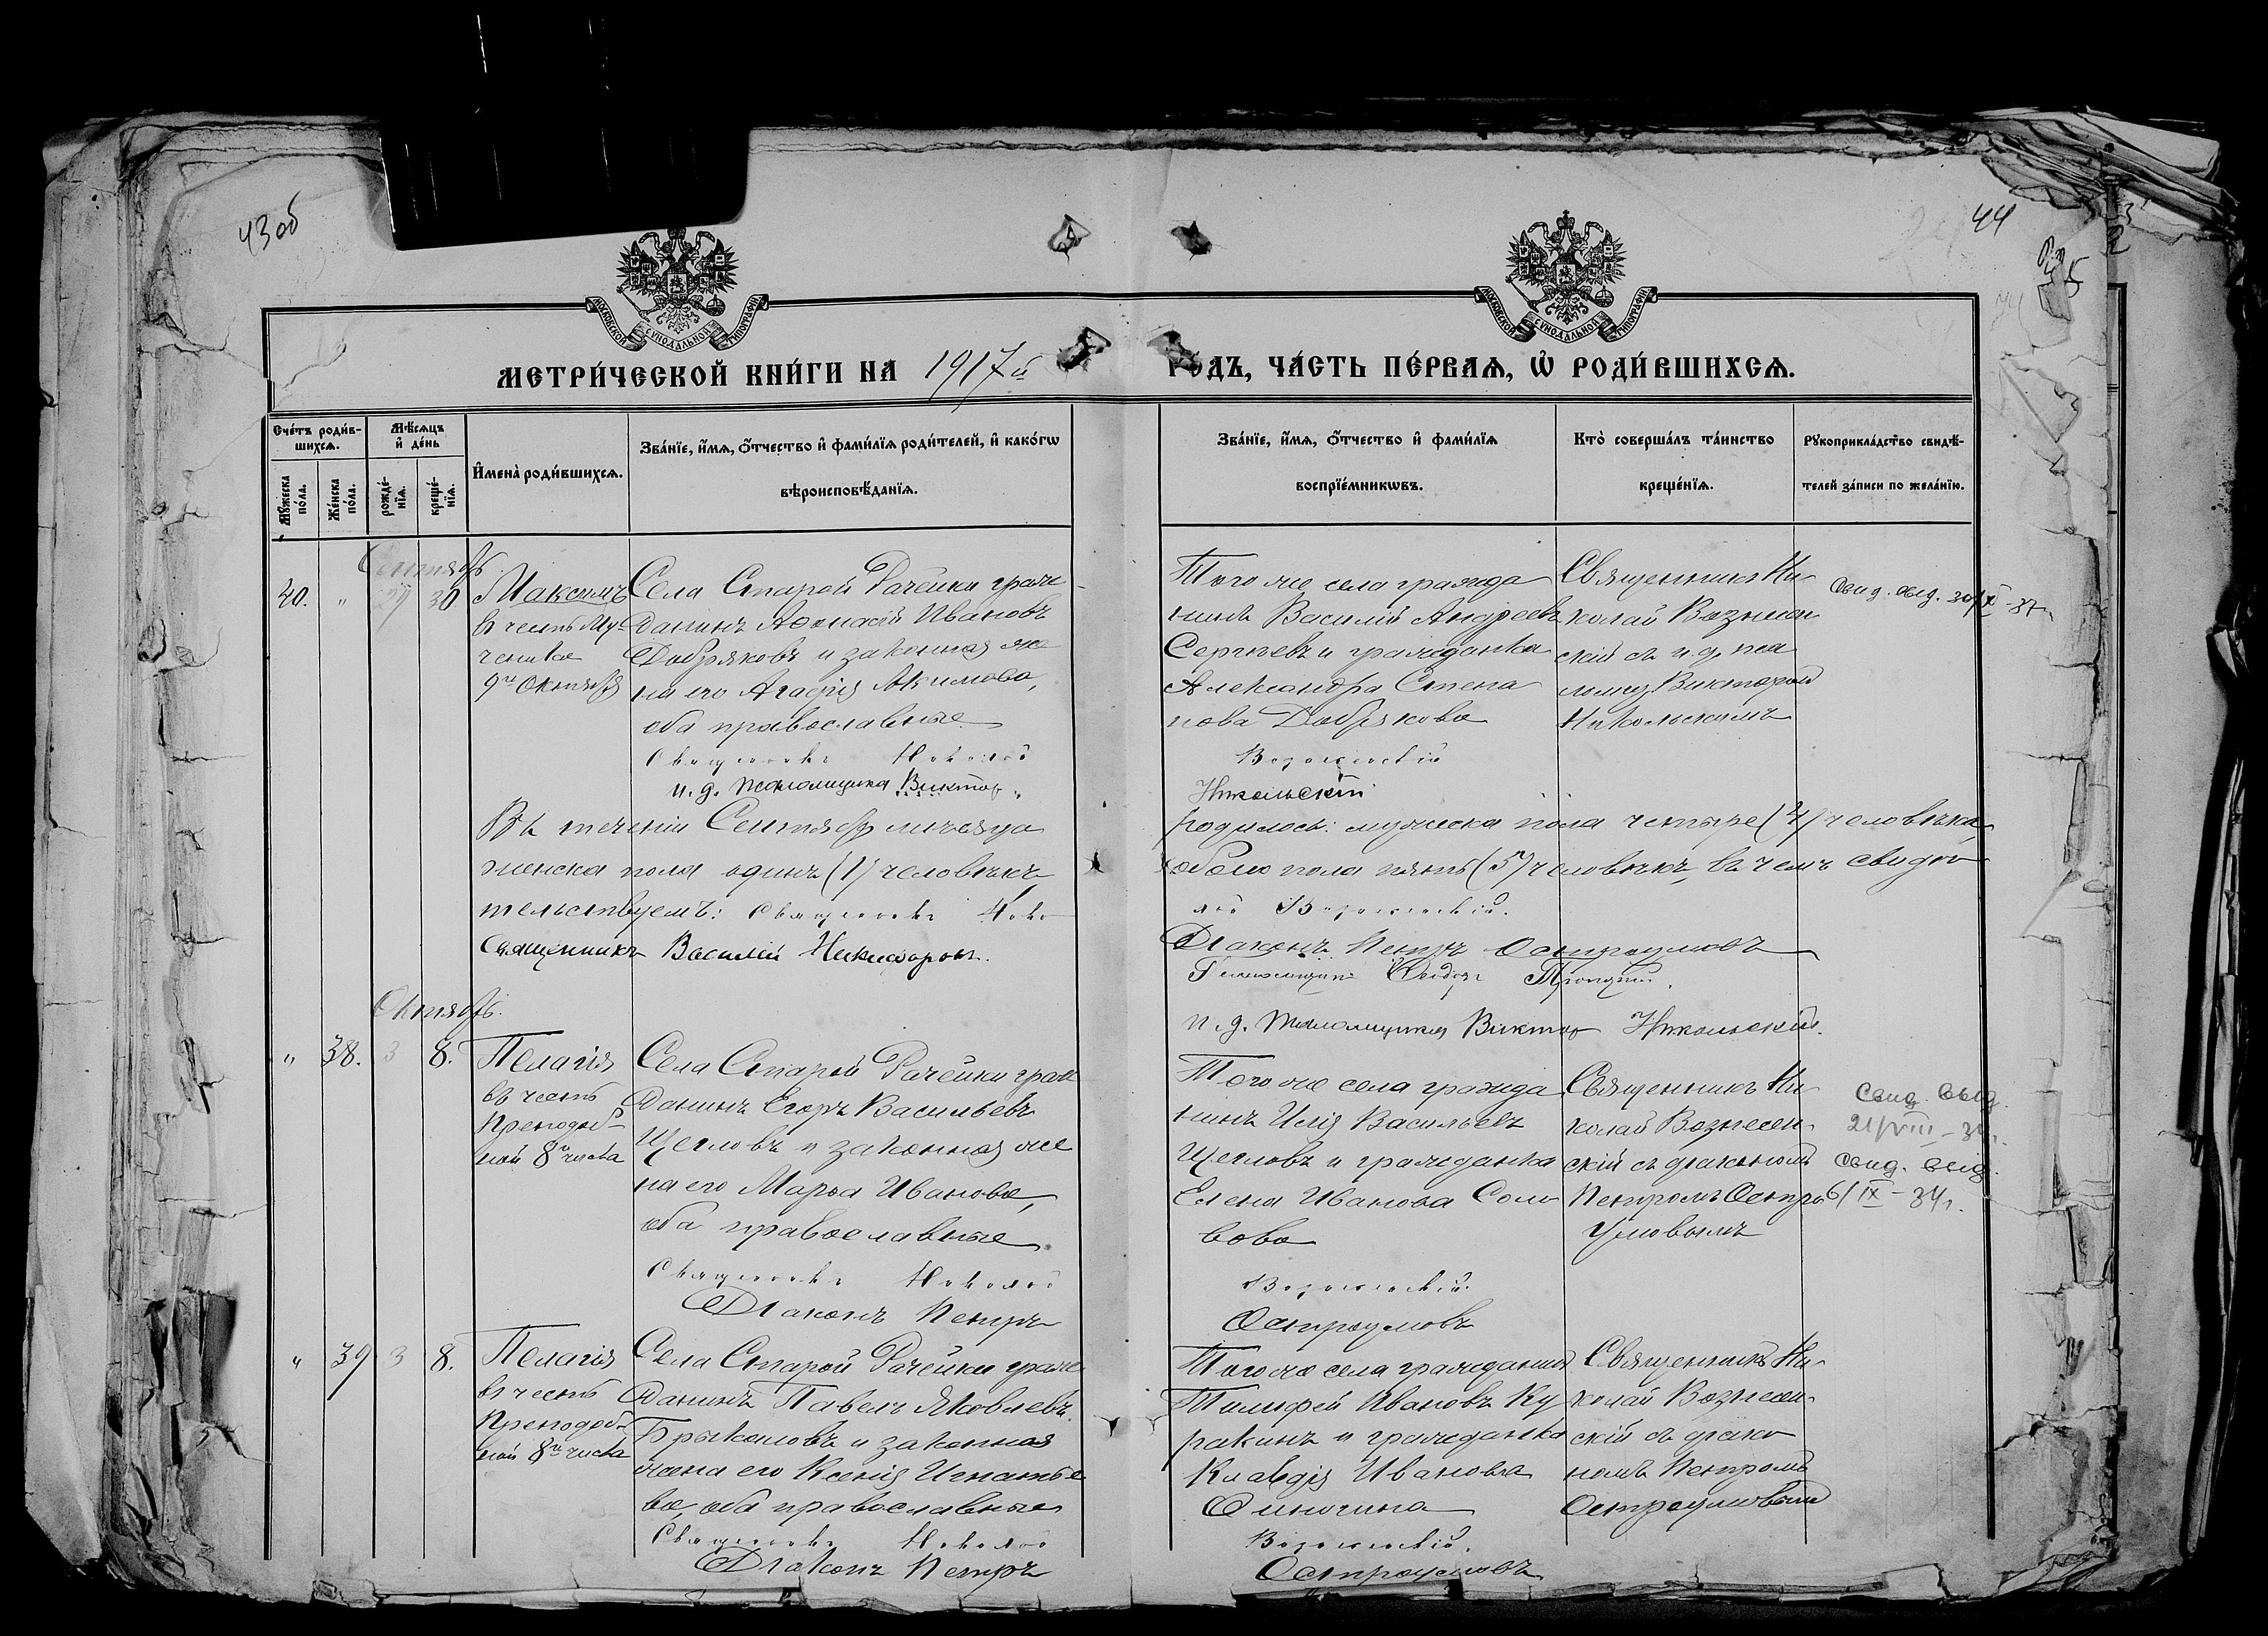 43 об
44
МОСКОВСКОЙ СѴНОДАЛЬНОЙ ТИПОГРАФІИ
МОСКОВСКОЙ СѴНОДАЛЬНОЙ ТИПОГРАФІИ
МЕТРИ́ЧЕСКОЙ КНИ́ГИ НА 1917й
ГО́ДЪ, ЧА́СТЬ ПЕ́РВАѦ, Ѡ҆ РОДИ́ВШИХСѦ.
Сче́тъ роди́в-
шихсѧ.
Мꙋ́жеска
по́ла.
Же́нска
по́ла.
Мѣ́сѧцъ
и҆ де́нь
рожде́-
нїѧ.
креще́-
нїѧ.
И҆мена̀ роди́вшихсѧ.
Зва́нїе, и҆́мѧ, ѻ҆́тчество и҆ фами́лїѧ роди́телей, и҆ како́гѡ
вѣроисповѣ́данїѧ.
Зва́нїе, и҆́мѧ, ѻ҆́тчество и҆ фами́лїѧ
воспрїе́мникѡвъ.
Кто̀ соверша́лъ та́инство
креще́нїѧ.
Рꙋкоприкла́дство свидѣ́-
телей за́писи по жела́нїю.
Сентябрь
40. " 29 30
Максимъ
въ честь Му-
ченика
9го Октября
Села Старой Рачейки граж-
данинъ Аѳонасій Ивановъ
Добряковъ и законная же
на его Агафія Акимова,
оба православные
Священникъ Николай
и. д. псаломщика Виктор
Того же села гражда
нинъ Василій Андреевъ
Сергѣевъ и гражданка
Александра Степа
нова Добрякова
Вознесенскій
Никольскій
Священникъ Ни-
колай Вознесен
скій съ и. д. пса
ломщ. Викторомъ
Никольскимъ
Въ теченіи Сентября мѣсяца
родилось: мужеска пола четыре (4) человѣка,
женска пола одинъ (1) человѣкъ
обоего пола пять (5) человѣкъ, въ чемъ свидѣ
тельствуемъ: Священникъ Нико
лай Вознесенскій.
Священникъ Василій Никифоровъ.
Діаконъ Петръ Остроумовъ
и. д. псаломщика Виктор Никольский.
Октябрь.
" 38. 3 8.
Пелагія
въ честь
Преподоб-
ной 8го числа
Села Старой Рачейки граж
данинъ Егоръ Васильевъ
Щегловъ и законная же
на его Марѳа Иванова,
оба православные.
Священникъ Николай
Діаконъ Петръ
Того же села гражда
нинъ Илія Васильевъ
Щегловъ и гражданка
Елена Иванова Соло
вова
Вознесенскій.
Остроумовъ
Священникъ Ни-
колай Вознесен-
скій съ діакономъ
Петромъ Остро
умовымъ
свид. выд.
свид. выд.
6/IX-34г.
" 39 3 8.
Пелагія
въ честь
Преподоб-
ной 8го числа
Села Старой Рачейки граж
данинъ Павелъ Яковлевъ
Брыкаловъ и законная
жена его Ксенія Игнатье
ва, оба православные
Священникъ Николай
Діаконъ Петръ
Того же села гражданинъ
Тимофей Ивановъ Ку
ракинъ и гражданка
Клавдія Иванова
Вознесенскій.
Остроумовъ
Священникъ Ни-
колай Вознесен-
скій съ діако
номъ Петромъ
Остроумовымъ